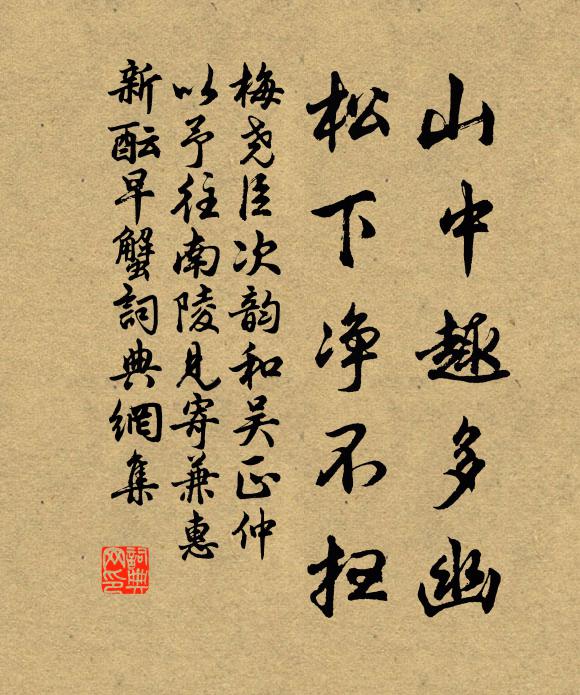 山中趣多幽
松下净不扫
梅尧臣次韵和吴正仲
以予往南陵见寄兼惠
新酝早蟹詞典網集
詞典
网印